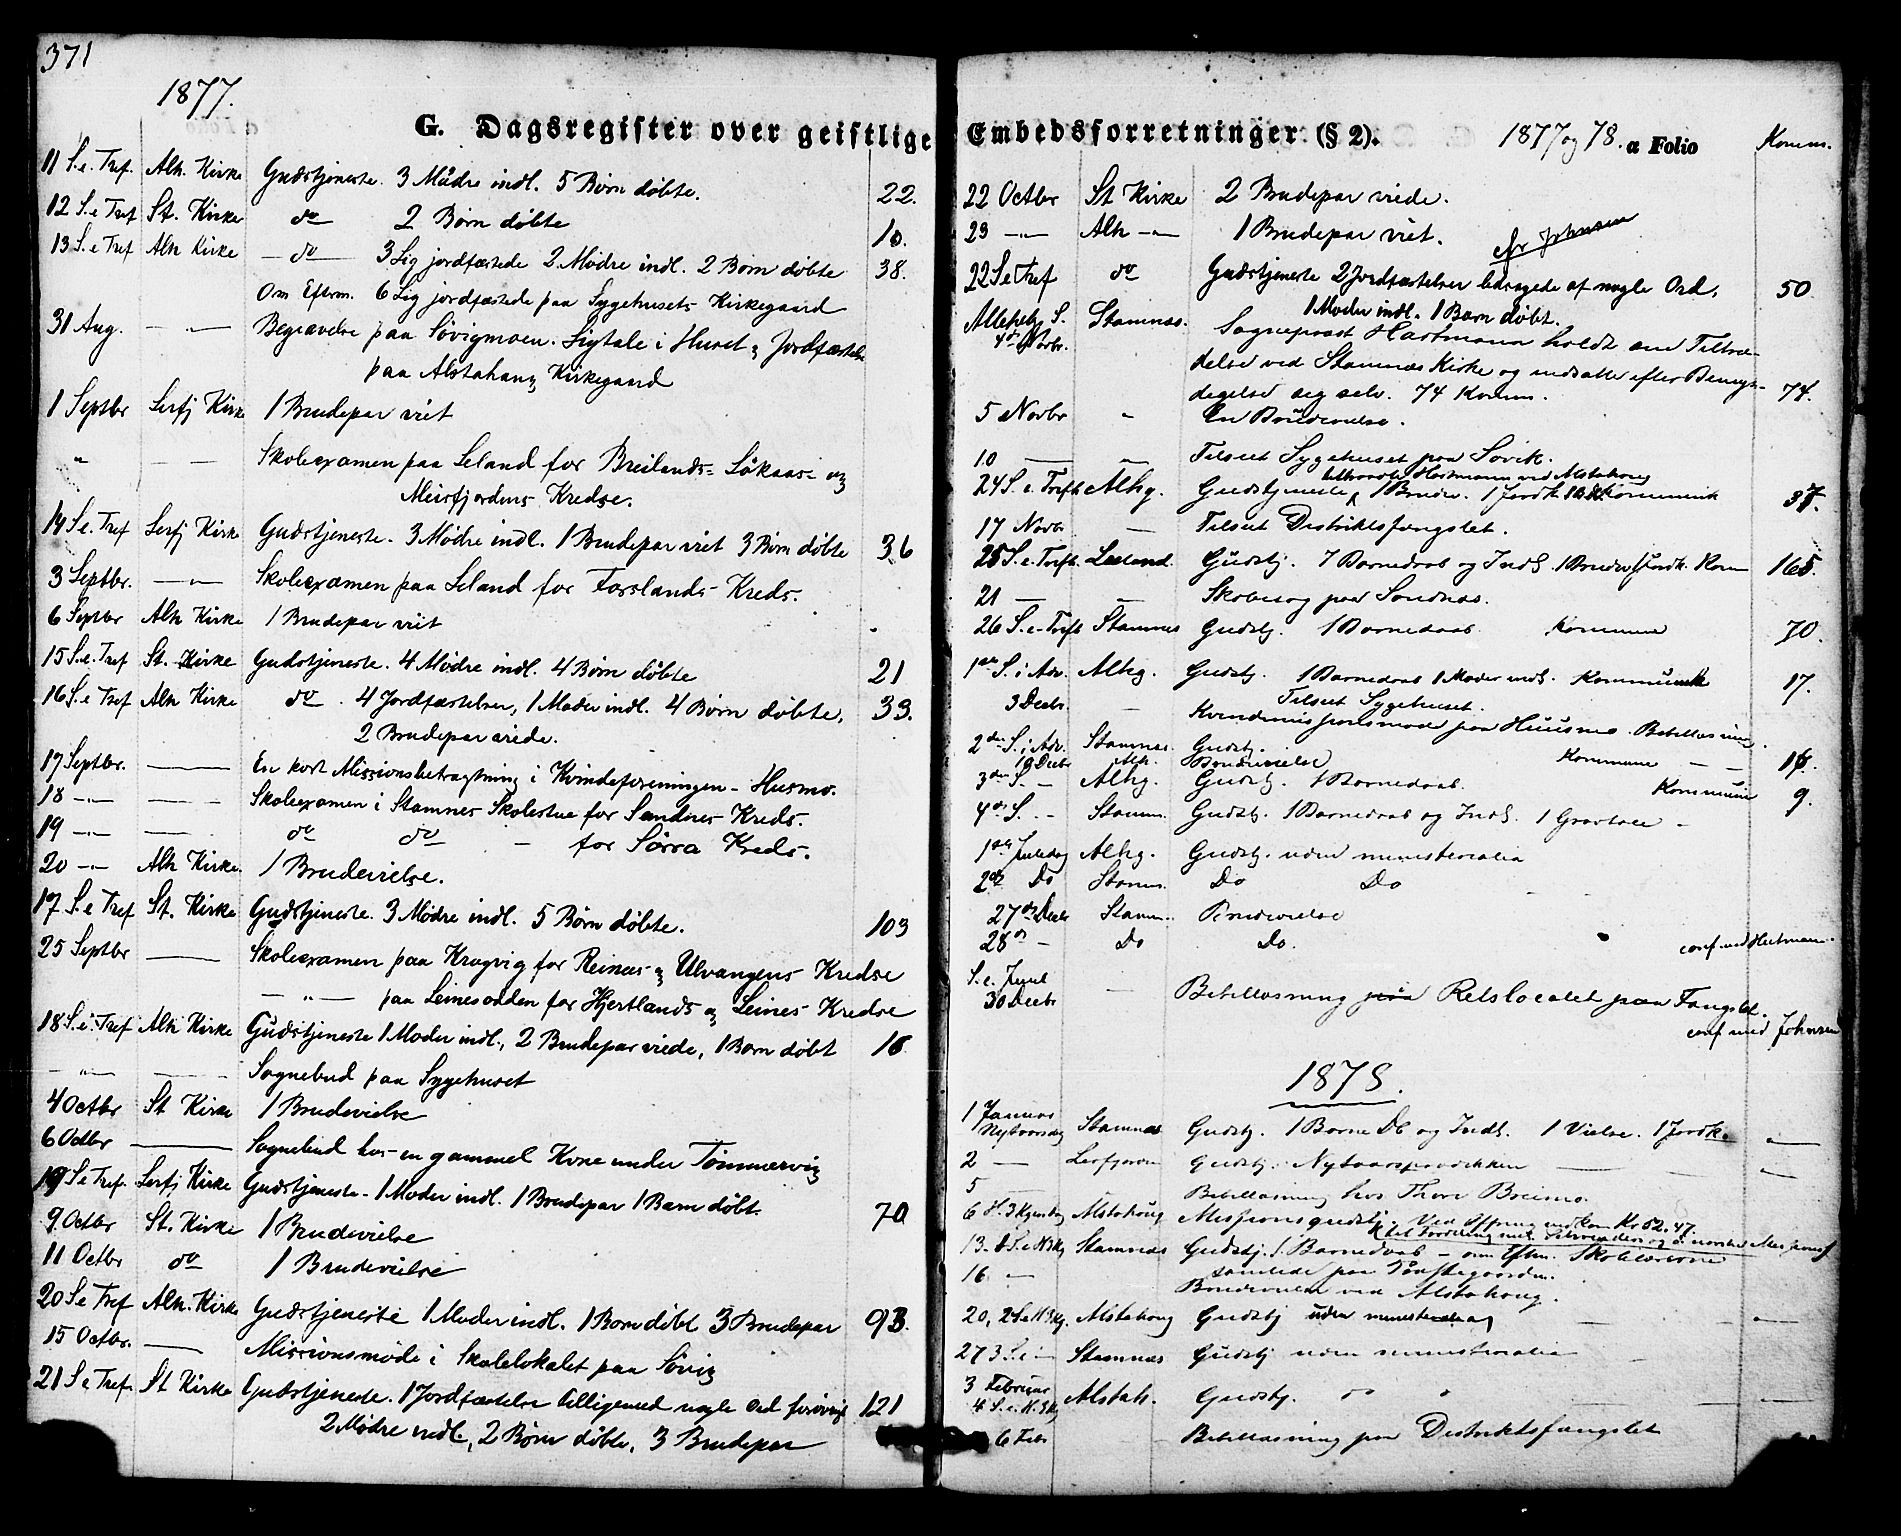 371
1877.
G. Dagsregister over geistlige
11 S.e. Tref. Alh. Kirke Gudstjeneste. 3 Mødre indl. 5 Børn døbte. 22.
12 S.e Tref St. Kirke do 2 Børn døbte 10.
13 S.e Tref Alh Kirke do 3 Lig jordfæstede 2 Mødre indl. 2 Børn døbte 38.
Om Efterm. 6 Lig jordfæstede paa Sygehusets Kirkegaard
31 Aug. — " — Begravelse paa Søvigmoen. Ligtale i Huset og Jordfæstelse
paa Alstahaug Kirkegaard
1 Septbr Lerfj Kirke 1 Brudepar viet
" — — Skoleexamen paa Leland for Breilands- Låkaas- og
Meisfjordens Kredse.
14 S.e. Tref Lerfj Kirke Gudstjeneste. 3 Mødre indl. 1 Brudepar viet 3 Børn døbte 36
3 Septbr. — " — Skoleexamen paa Leland for Forslands- Kreds.
6 Septbr Alh Kirke 1 Brudepar viet
15 S.e. Tref St. Kirke Gudstjeneste. 4 Mødre indl. 4 Børn døbte 21
16 S.e Tref Alh Kirke do. 4 Jordfæstelser, 1 Moder indl. 4 Børn døbte, 33.
2 Brudepar viede.
17 Septbr. — En kort Missionsbetragtning i Kvindeforeningen - Husmo.
18 — " — — Skoleexamen i Stamnes Skolestue for Sandnes Kreds.
19 — " — — do do - for Sørra Kreds.
20 — " — Alh Kirke. 1 Brudevielse.
17 S.e Tref St. Kirke Gudstjeneste. 3 Mødre indl. 5 Børn døbte. 103
25 Septbr — Skoleexamen paa Kragvig for Reinæs- og Ulvangens Kredse
— " — paa Leinesodden for Hjertlands og Leines Kredse
18 S.e. Tref Alh Kirke Gudstjeneste 1 Moder indl., 2 Brudepar viede, 1 Barn døbt 16
— " — — Sognebud paa Sygehuset
4 Octbr St Kirke 1 Brudevielse
6 Octbr — Sognebud hos en gammel Kone under Tømmervig
19 S e Tref. Lerfj Kirke Gudstjeneste - 1 Moder indl. 1 Brudepar 1 Barn døbt 70
9. Octbr St. Kirke 1 Brudevielse
11 Octbr do 1 Brudevielse
20 S e Tref Alh. Kirke Gudstjeneste 1 Moder indl. 1 Barn døbt 3 Brudepar 93.
15 Octbr. — Missionsmøde i Skolelokalet paa Søvig
21 S e Tref. St Kirke Gudstjeneste. 1 Jordfæstelse tilligemed nogle Ord forøvrigt 121
2 Mødre indl., 2 Børn døbte, 3 Brudepar
Embedsforretninger (§ 2). 1877 og 78. a Folio Komm.
22 Octbr St Kirke 2 Brudepar viede.
23 — " — Alh — " — 1 Brudepar viet. Johnsen
22 S e Tref do Gudstjeneste 2 Jordfæstelser ledsagede af nogle Ord, 50
1 Moder indl. 1 Barn døbt.
Allehelg. S. 4de Novbr. Stamnæs. Sogneprest Hartmann holdt sin Tiltræ-
delse ved Stamnæs Kirke og indsatte efter Bemyn-
digelse sig selv. 74 Komm. 74.
5 Novbr " En Brudevielse.
10 — — Tilseet Sygehuset paa Søvik.
tiltraadte Hartmann ved Alstahoug
24 S. e. Trefb Alhg. Gudstjeneste 1 Brudev. 1 Jordk. Kommunik 37.
17 Novbr — Tilseet Distriktsfængslet.
25 S. e. Trefb. Leeland. Gudstj. 7 Barnedaab og Indl. 1 Brudev. 1 Jordk. Kom 165.
21 — — Skolesog paa Sandnæs.
26 S. e. Trefb Stamnes Gudstj. 1 Barnedaab. Kommune 70.
1ste S. i Adv. Alhg. Gudstj. 1 Barnedaab 1 Moder indl. Kommunik 17.
3 Decbr. — Tilseet Sygehuset.
Kvindemissionsmøde paa Huusmo. Bibellæsning.
2den S. i Adv. Stamnæs. Gudstj. Kommune — — 16.
10 Decbr Alh. Brudevielse
3die S. — Alhg. Gudstj. 1 Barnedaab. Kommune 9.
4de S. - - Stamn. Gudstj. 1 Barnedaab og Indl. 1 Gravtale —
1ste Juledag Alhg. Gudstj. uden ministerialia
2den Do Stamn. Do Do
27de Decbr Stamn. Brudevielse
28de — Do Do. conf. med Hartmann.
S. e. Juul
30 Decbr — Bibellæsning Retslocalet paa Fængslet.
conf med Johnsen
1878.
1 Januar
Nytaarsdag Stamnæs Gudstj. 1 Barne Db og Indl. 1 Vielse. 1 Jordk. —
2 — Lerfjorden Gudstj. Nytaarsprædikken — — —
5 — Bibellæsning hos Thore Breimo.
6 H. 3 Kgersdag Alstahoug Missionsgudstj. Ved Offring indkom Kr 52.47
13. 1 S. e N3Kg Stamnæs Gudstj. 1 Barnedaab — om Eftm. Skolelærerne
16 — samlede paa Præstegaarden.
Brudevielse ved Alstahoug.
20, 2 S e N 3 Kg. Alstahoug Gudstj uden ministerialia —
27 3 S. e — Stamnæs Gudstj uden ministerialia — —
3 Februar
4 S. e. N. 3 Kg Alstah. Gudstj. do " — —
6 Febr Bibellæsning paa Distriktsfængslet